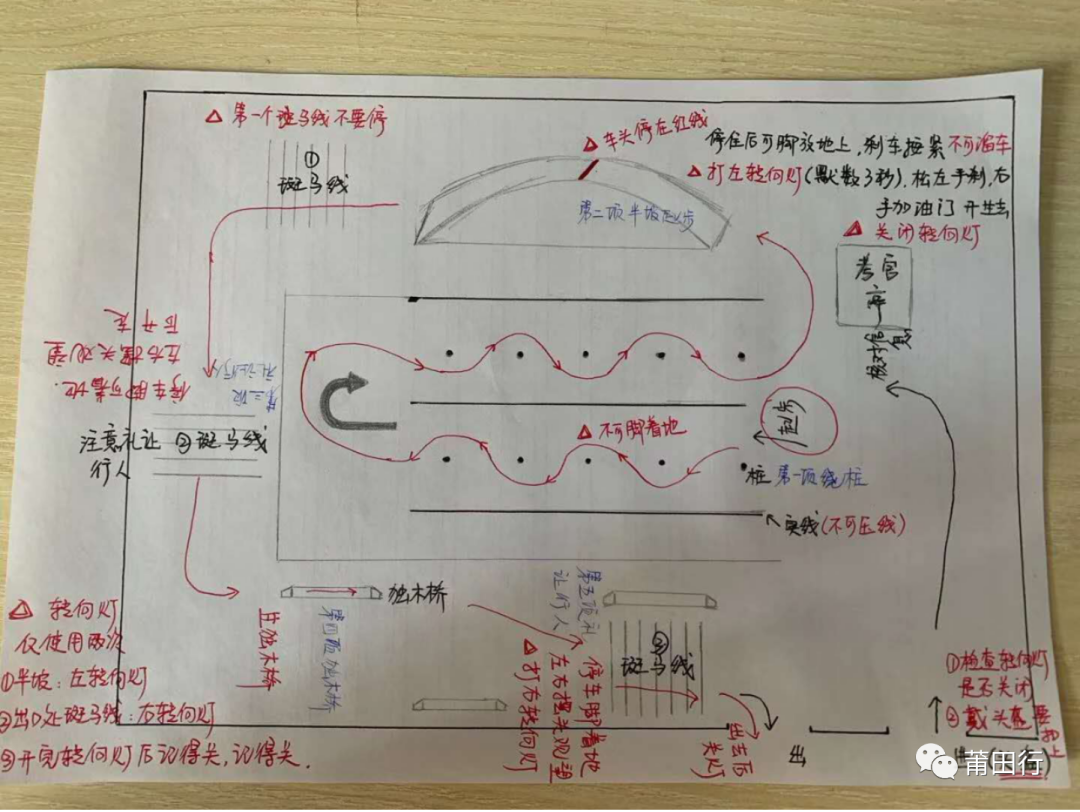 △ 第一个斑马线不要停
① 斑马线
△ 车头停在红线
停住后可脚放地上,刹车捏紧 不可溜车
△ 打左转向灯(默数3秒).松左手刹,右
手加油门 开出去
△ 关闭转向灯
第二项半坡起步
考官
序
核对信息
停车脚可着地.
左右摆头观望
后开走
第三项
礼让行人
注意礼让
行人
② 斑马线
起步
△ 不可脚着地
桩 第一项绕桩
实线(不可压线)
独木桥
第四项独木桥
上独木桥
第五项礼
让行人
斑马线
停车脚着地
左右摆头观望
△打右转向灯
出去后
关灯
出
△ 转向灯
仅使用两次
①半坡:左转向灯
②出口处斑马线:右转向灯
③开完转向灯后记得关,记得关.
①检查转向灯
是否关闭
②戴头盔 要扣上
莆田行